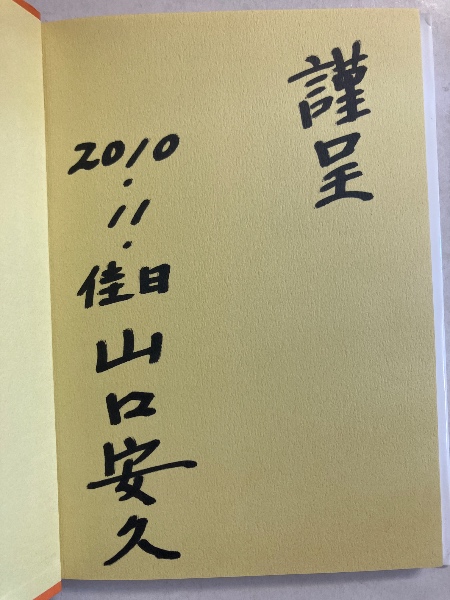 謹呈
2010.11.佳日
山口安久